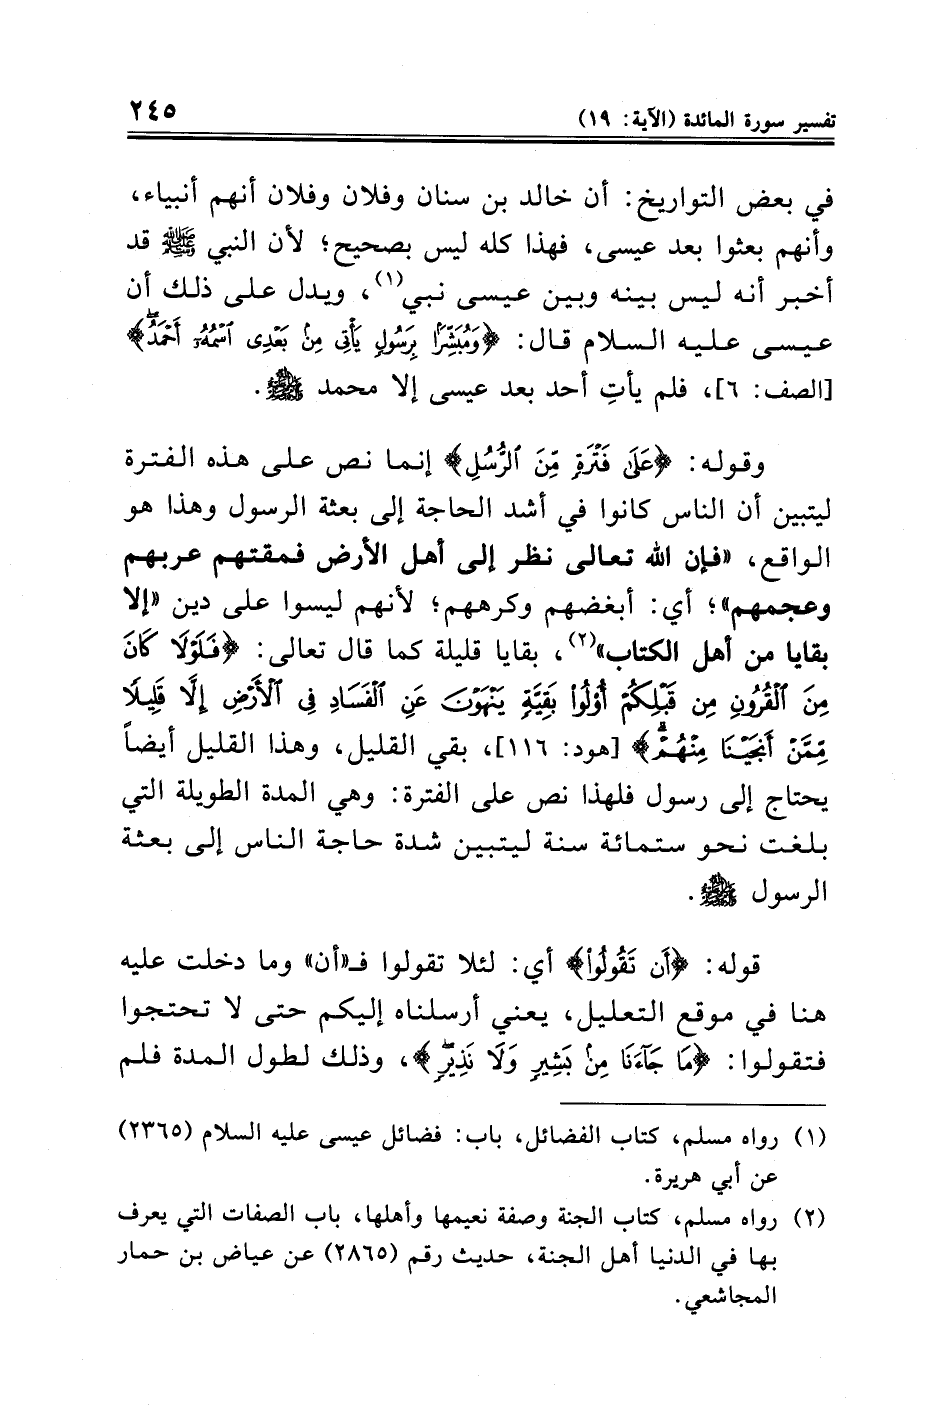 تفسير سورة المائدة (الآية: ١٩) ٢٤٥
في بعض التواريخ: أن خالد بن سنان وفلان وفلان أنهم أنبياء،
وأنهم بعثوا بعد عيسى، فهذا كله ليس بصحيح؛ لأن النبي ﷺ قد
أخبر أنه ليس بينه وبين عيسى نبي(١)، ويدل على ذلك أن
عيسى عليه السلام قال: ﴿وَمُبَشِّرًۢا بِرَسُولٍ يَأْتِى مِنۢ بَعْدِى ٱسْمُهُۥٓ أَحْمَدُۖ﴾
[الصف: ٦]، فلم يأتِ أحد بعد عيسى إلا محمد ﷺ.
وقوله: ﴿عَلَىٰ فَتْرَةٍ مِّنَ ٱلرُّسُلِ﴾ إنما نص على هذه الفترة
ليتبين أن الناس كانوا في أشد الحاجة إلى بعثة الرسول وهذا هو
الواقع، «فإن الله تعالى نظر إلى أهل الأرض فمقتهم عربهم
وعجمهم»؛ أي: أبغضهم وكرههم؛ لأنهم ليسوا على دين «إلا
بقايا من أهل الكتاب»(٢)، بقايا قليلة كما قال تعالى: ﴿فَلَوْلَا كَانَ
مِنَ ٱلْقُرُونِ مِن قَبْلِكُمْ أُو۟لُوا۟ بَقِيَّةٍ يَنْهَوْنَ عَنِ ٱلْفَسَادِ فِى ٱلْأَرْضِ إِلَّا قَلِيلًا
مِّمَّنْ أَنجَيْنَا مِنْهُمْۗ﴾ [هود: ١١٦]، بقي القليل، وهذا القليل أيضاً
يحتاج إلى رسول فلهذا نص على الفترة: وهي المدة الطويلة التي
بلغت نحو ستمائة سنة ليتبين شدة حاجة الناس إلى بعثة
الرسول ﷺ.
قوله: ﴿أَن تَقُولُوا۟﴾ أي: لئلا تقولوا فـ«أن» وما دخلت عليه
هنا في موقع التعليل، يعني أرسلناه إليكم حتى لا تحتجوا
فتقولوا: ﴿مَا جَآءَنَا مِنۢ بَشِيرٍ وَلَا نَذِيرٍۖ﴾، وذلك لطول المدة فلم
(١) رواه مسلم، كتاب الفضائل، باب: فضائل عيسى عليه السلام (٢٣٦٥)
عن أبي هريرة.
(٢) رواه مسلم، كتاب الجنة وصفة نعيمها وأهلها، باب الصفات التي يعرف
بها في الدنيا أهل الجنة، حديث رقم (٢٨٦٥) عن عياض بن حمار
المجاشعي.